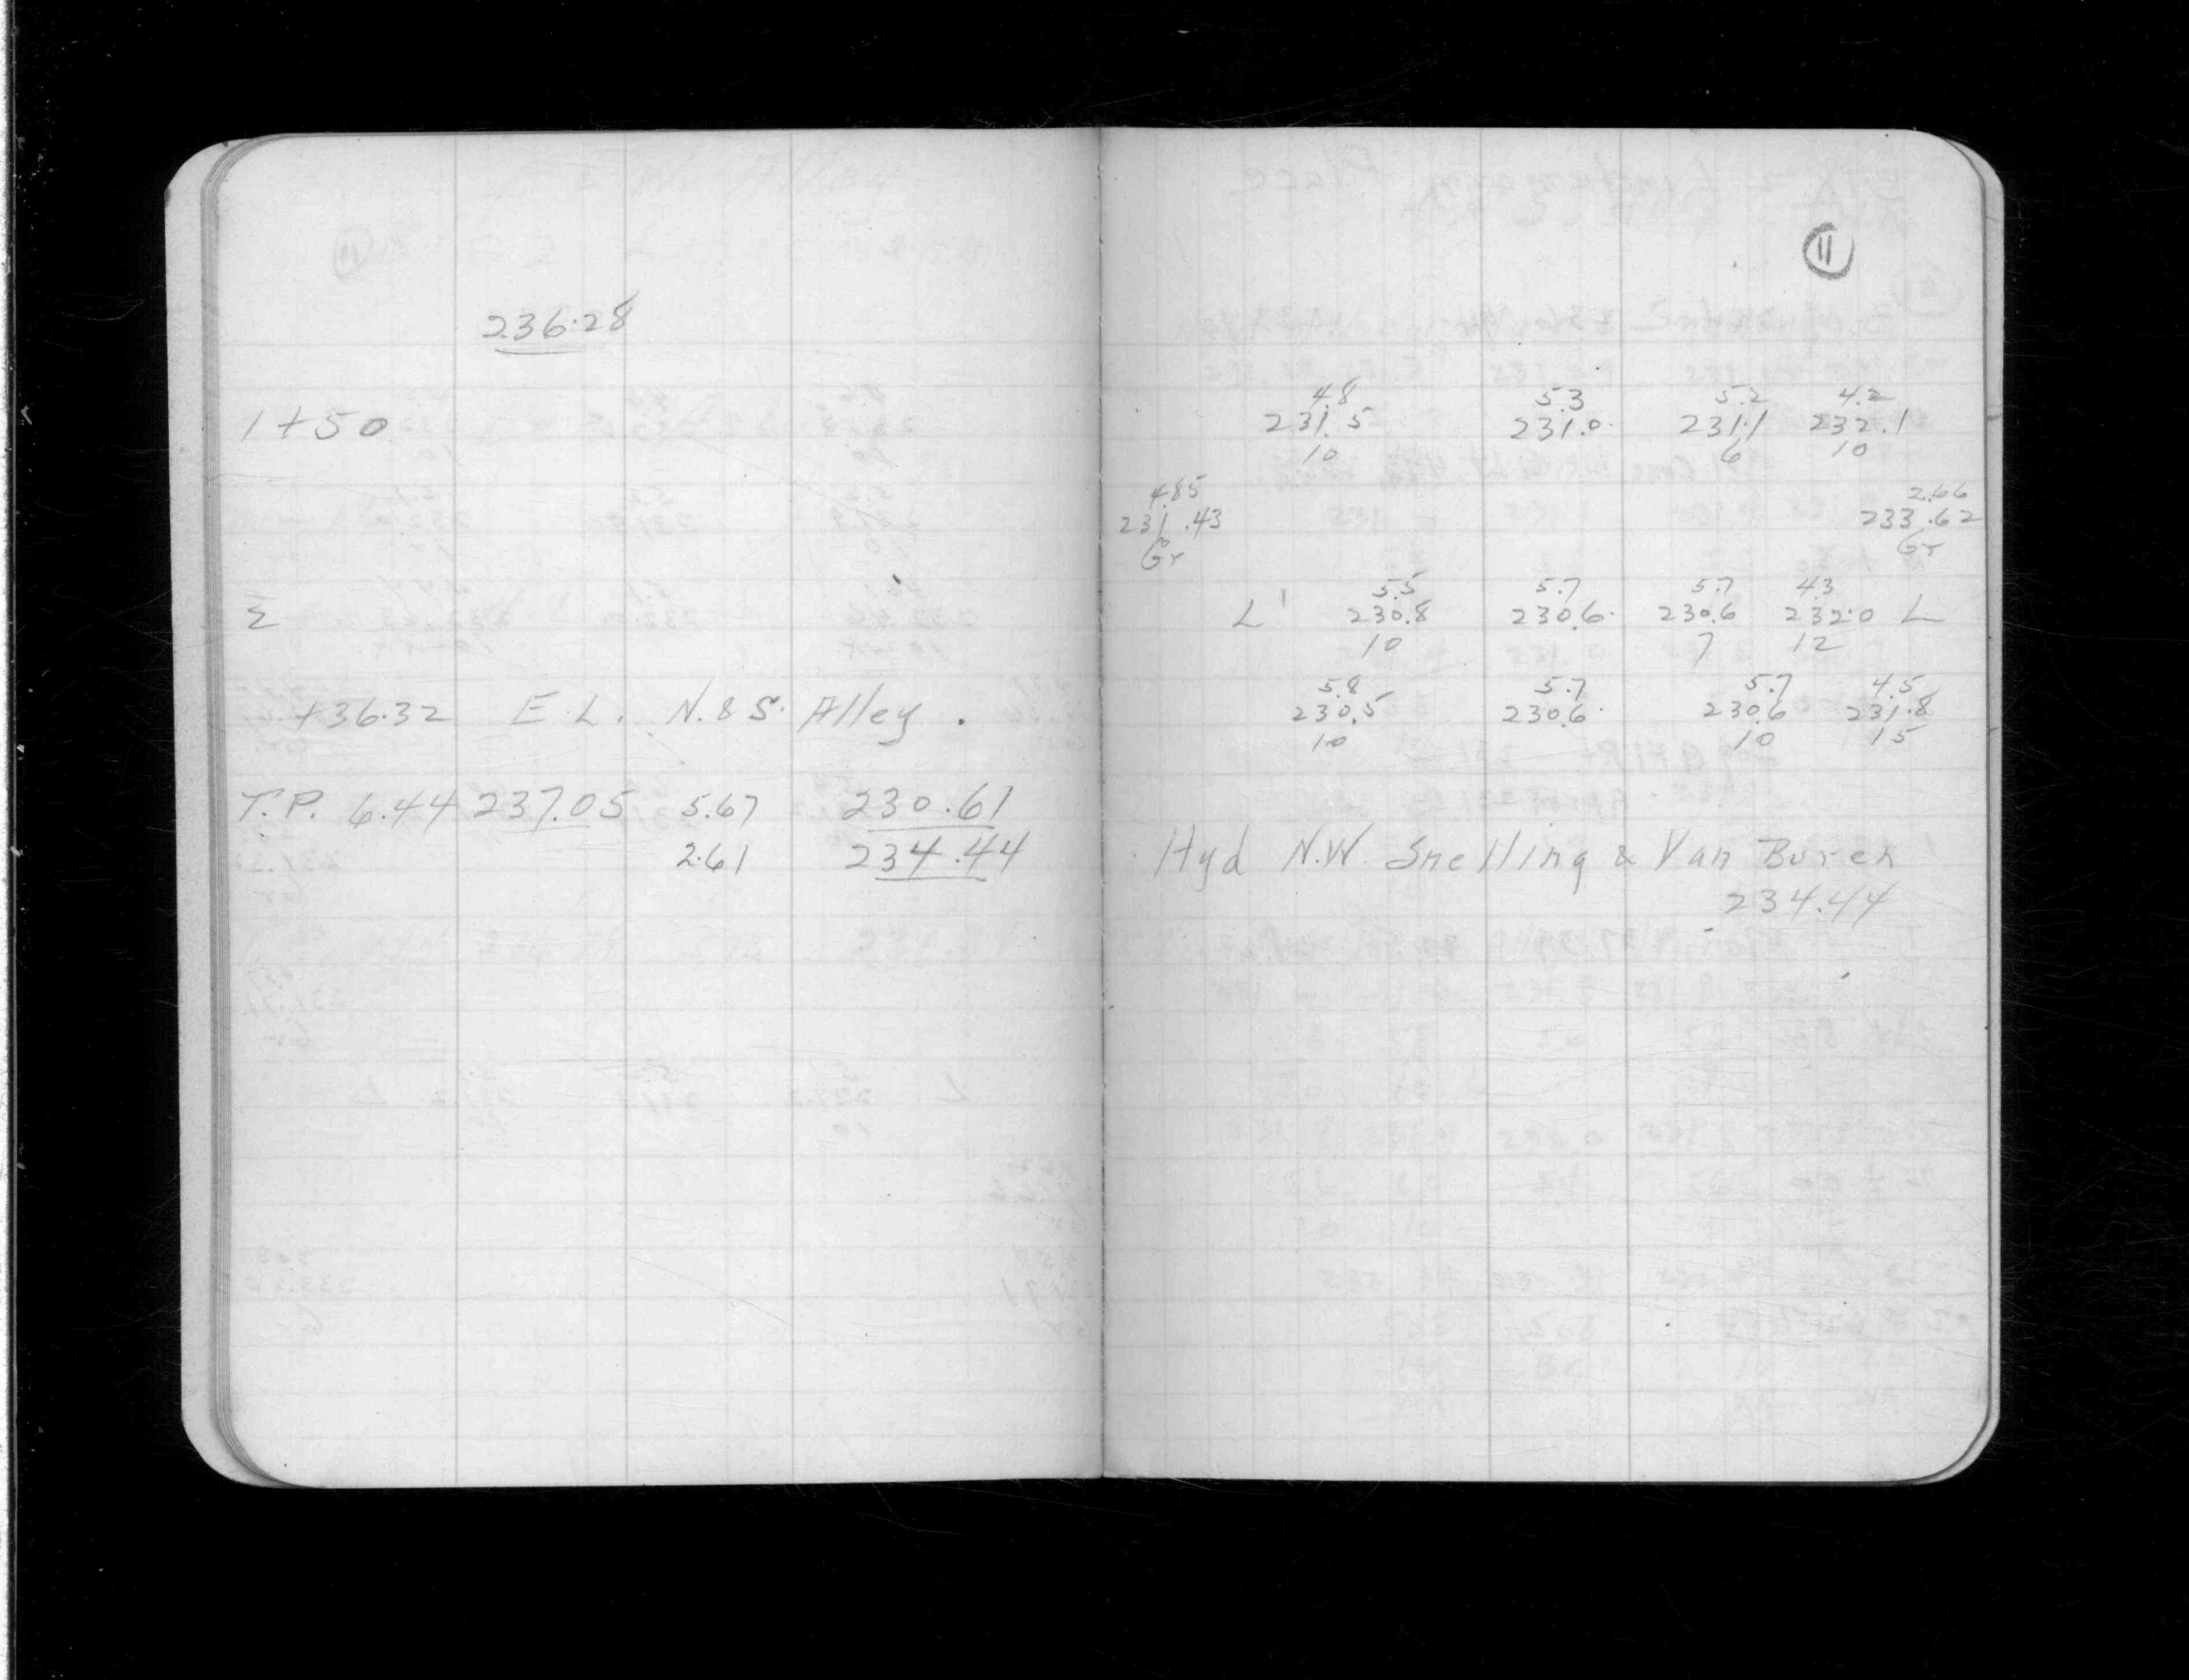 236.28
1+50
2
+36.32 E.L. N.&S. Alley.
T.P. 6.44 237.05 5.67 230.61
2.61 234.44
11
4.8 5.3 5.2 4.2
231.5 231.0 231.1 232.1
10 6 10
4.85 2.66
231.43 233.62
Gr Gr
5.5 5.7 5.7 4.3
L 230.8 230.6 230.6 232.0 L
10 7 12
5.8 5.7 5.7 4.5
230.5 230.6 230.6 231.8
10 10 15
Hyd N.W. Snelling & Van Buren
234.44